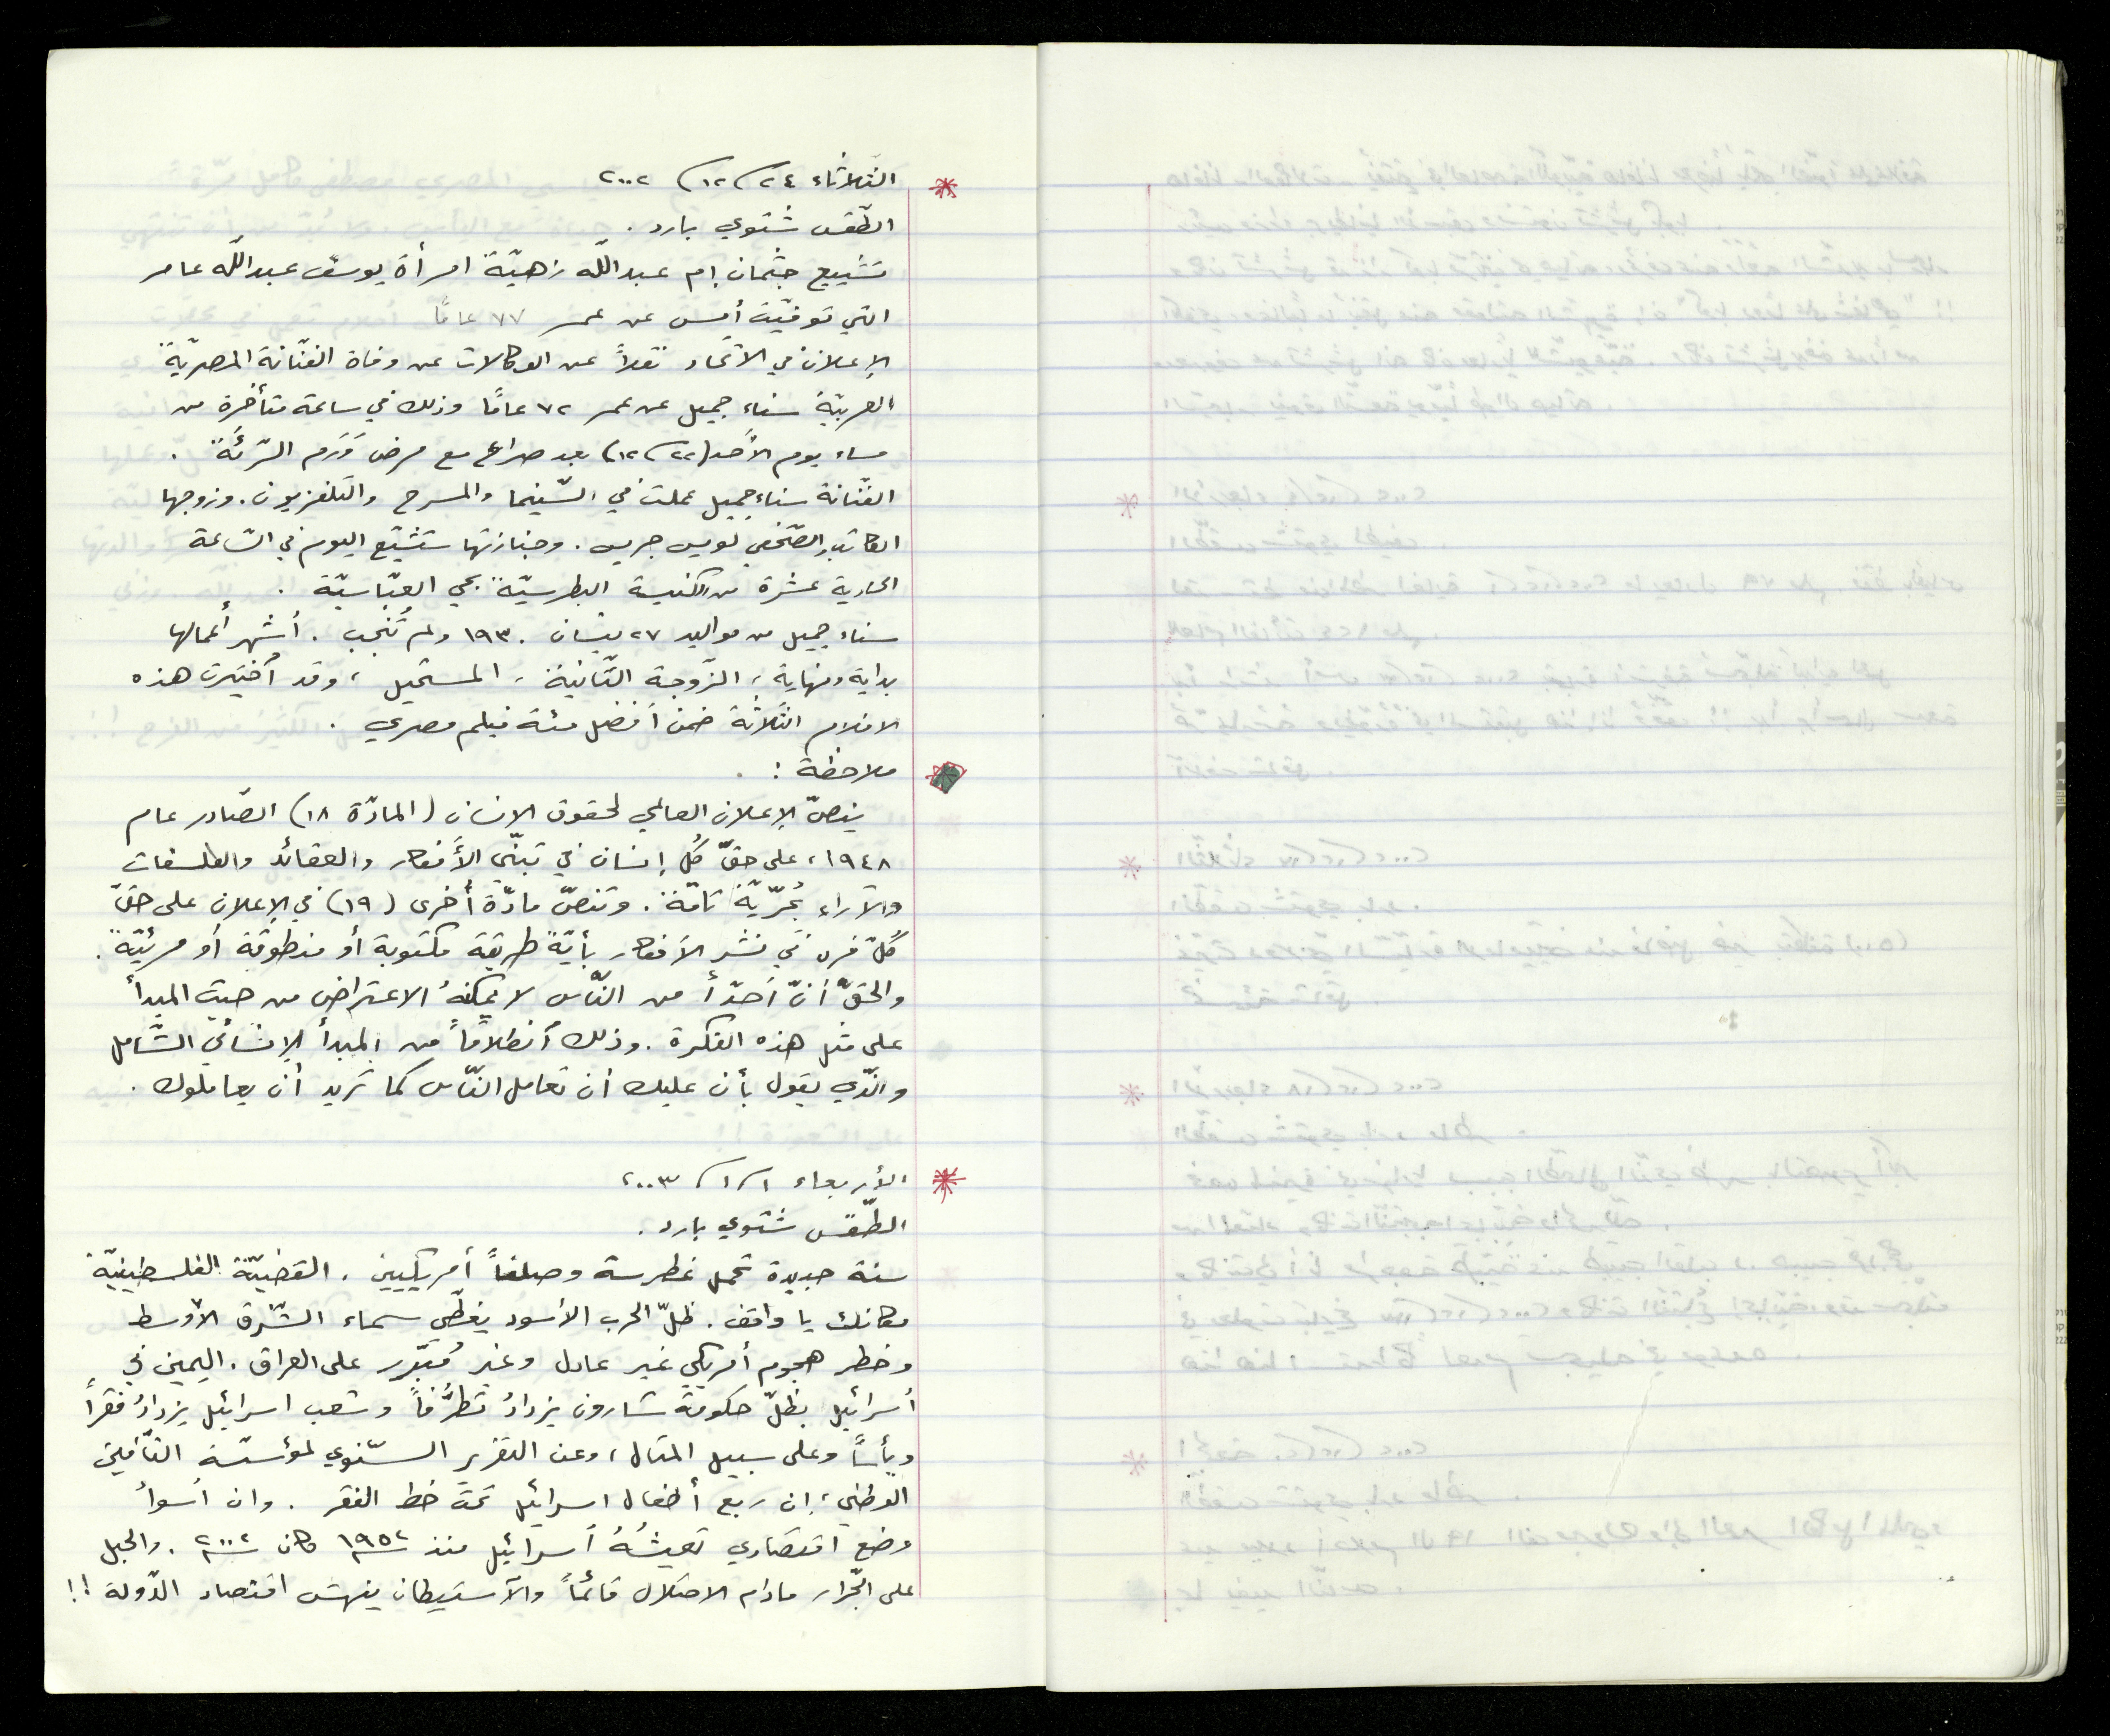 الثّلاثاء ٢٤/١٢/٢٠٠٢
الطّقس شتوي بارد .
تشييع جثمان إم عبدالله زهيّة امرأة يوسف عبدالله عامر
التي توفّيت أمس عن عمر ٧٧ عامًا
الإعلان في الاتّحاد نقلاً عن الوكالات عن وفاة الفنّانة المصريّة
العربيّة سناء جميل عن عمر ٧٢ عامًا وذلك في ساعة متأخّرة من
مساء يوم الأحد (٢٢/١٢) بعد صراع مع مرض وَرَم الرّئة .
الفنّانة سناء جميل عملت في السّينما والمسرح والتلفزيون . وزوجها
الكاتب والصّحفي لويس جريس . وجنازتها ستشيّع اليوم في السّاعة
الحادية عشرة من الكنيسة البطرسيّة بحي العبّاسيّة .
سناء جميل من مواليد ٢٧ نيسان ١٩٣٠ ولم تُنجب . أشهر أعمالها
بداية ونهاية ، الزّوجة الثّانية ، المستحيل ، وقد اُختيرت هذه
الافلام الثّلاثة ضمن أفضل مئة فيلم مصري .
ملاحظة :
ينصّ الإعلان العالمي لحقوق الانسان (المادّة ١٨) الصّادر عام
١٩٤٨ ، على حقّ كُل إنسان في تبنّي الأَفكار والعقائد والفلسفات
والآراء بحُرّيّة تامّة . وتنصّ مادّة أُخرى (١٩) في الإعلان على حقّ
كُلّ فرد في نشر الأفكار بأيّة طريقة مكتوبة أو منطوقة أو مرئيّة .
والحقّ أنّ أحدًا من النّاس لا يمكنهُ الاعتراض من حيث المبدأ
على مثل هذه الفكرة . وذلك اُنطلاقاً من المبدأ الإنساني الشّامل
والذّي يقول بأن عليك أن تعامل النّاس كما تريد أن يعاملوك .
الأربعاء ١/١/٢٠٠٣
الطّقس شتوي بارد .
سنة جديدة تحمل غطرسة وصلفاً أمريكيين . القضيّة الفلسطينيّة
مكانك يا واقف . ظلّ الحرب الأسود يغطّي سماء الشّرق الأوسط
وخطر هجوم أمريكي غير عادل وغير مُبّرر على العراق . اليمين في
اُسرائيل بظلّ حكومة شارون يزدادُ تطرُّفاً وشعب اسرائيل يزدادُ فقراً
ويأساً وعلى سبيل المثال ، وعن التقرير السّنوي لمؤسسّة التّأمين
الوطني ، إن ربع أطفال اسرائيل تحت خط الفقر . وان أسوأ
وضع اقتصادي تعيشُهُ اُسرائيل منذ ١٩٥٢ كان ٢٠٠٢ . والحبل
على الجّرار مادام الاحتلال قائماً والاُستيطان ينهش اقتصاد الدّولة !!